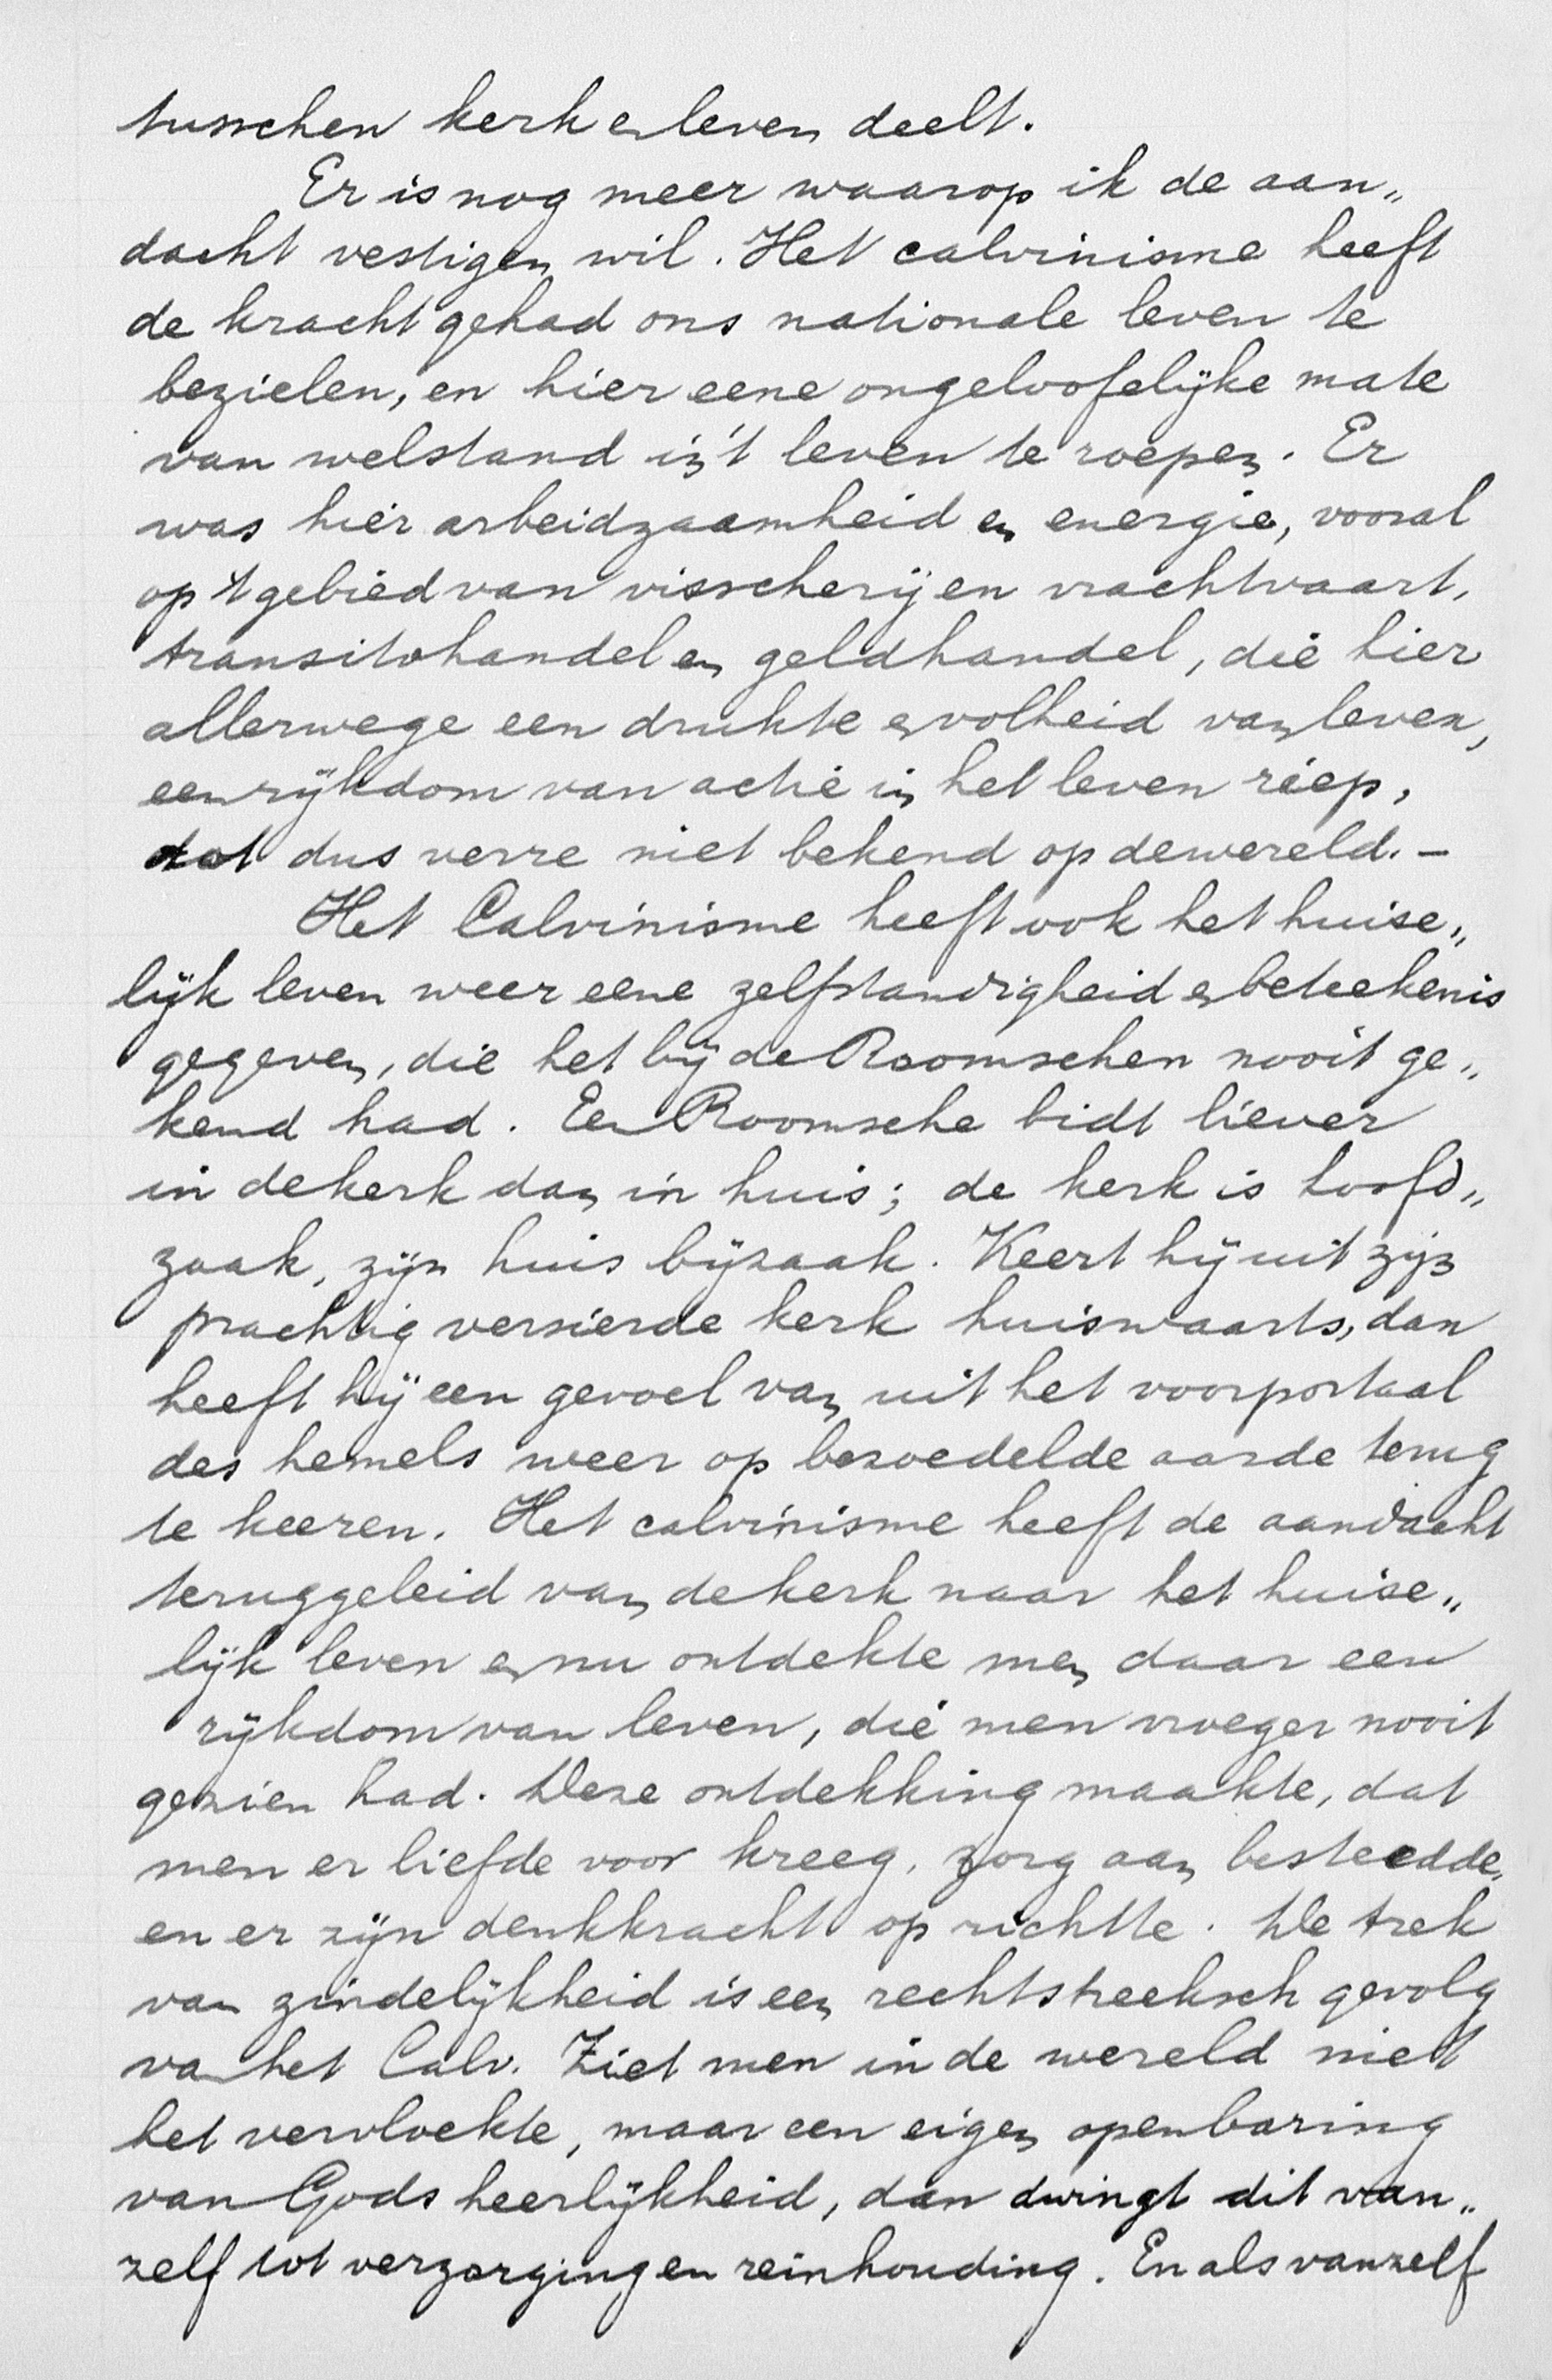 tusschen kerk en leven deelt.
Er is nog meer waarop ik de aan„
dacht vestigen wil. Het calvinisme heeft
de kracht gehad ons nationale leven te
bezielen, en hier eene ongeloofelijke mate
van welstand in 't leven te roepen. Er
was hier arbeidzaamheid en energie, vooral
op 't gebied van visscherij en vrachtvaart,
transitohandel en geldhandel, die hier
allerwege een drukte en volheid van leven,
een rijkdom van actie in het leven riep,
dat dus verre niet bekend op de wereld. –
Het Calvinisme heeft ook het huise„
lijk leven weer eene zelfstandigheid en beteekenis
gegeven, die het bij de Roomschen nooit ge„
kend had. Een Roomsche bidt liever
in de kerk dan in huis; de kerk is hoofd„
zaak, zijn huis bijzaak. Keert hij uit zijn
prachtig versierde kerk huiswaarts, dan
heeft hij een gevoel van uit het voorportaal
des hemels weer op bezoedelde aarde terug
te keeren. Het calvinisme heeft de aandacht
teruggeleid van de kerk naar het huise„
lijk leven en nu ontdekte men daar een
rijkdom van leven, die men vroeger nooit
gezien had. Deze ontdekking maakte, dat
men er liefde voor kreeg, zorg aan besteedde,
en er zijn denkkracht op richtte. De trek
van zindelijkheid is een rechtstreeksch gevolg
van het Calv. Ziet men in de wereld niet
het vervloekte, maar een eigen openbaring
van Gods heerlijkheid, dan dwingt dit van„
zelf tot verzorging en reinhouding. En als vanzelf